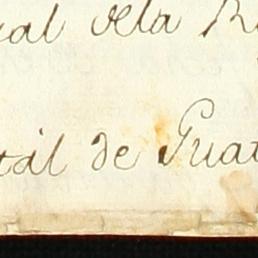 ual dela R
tál de Guat